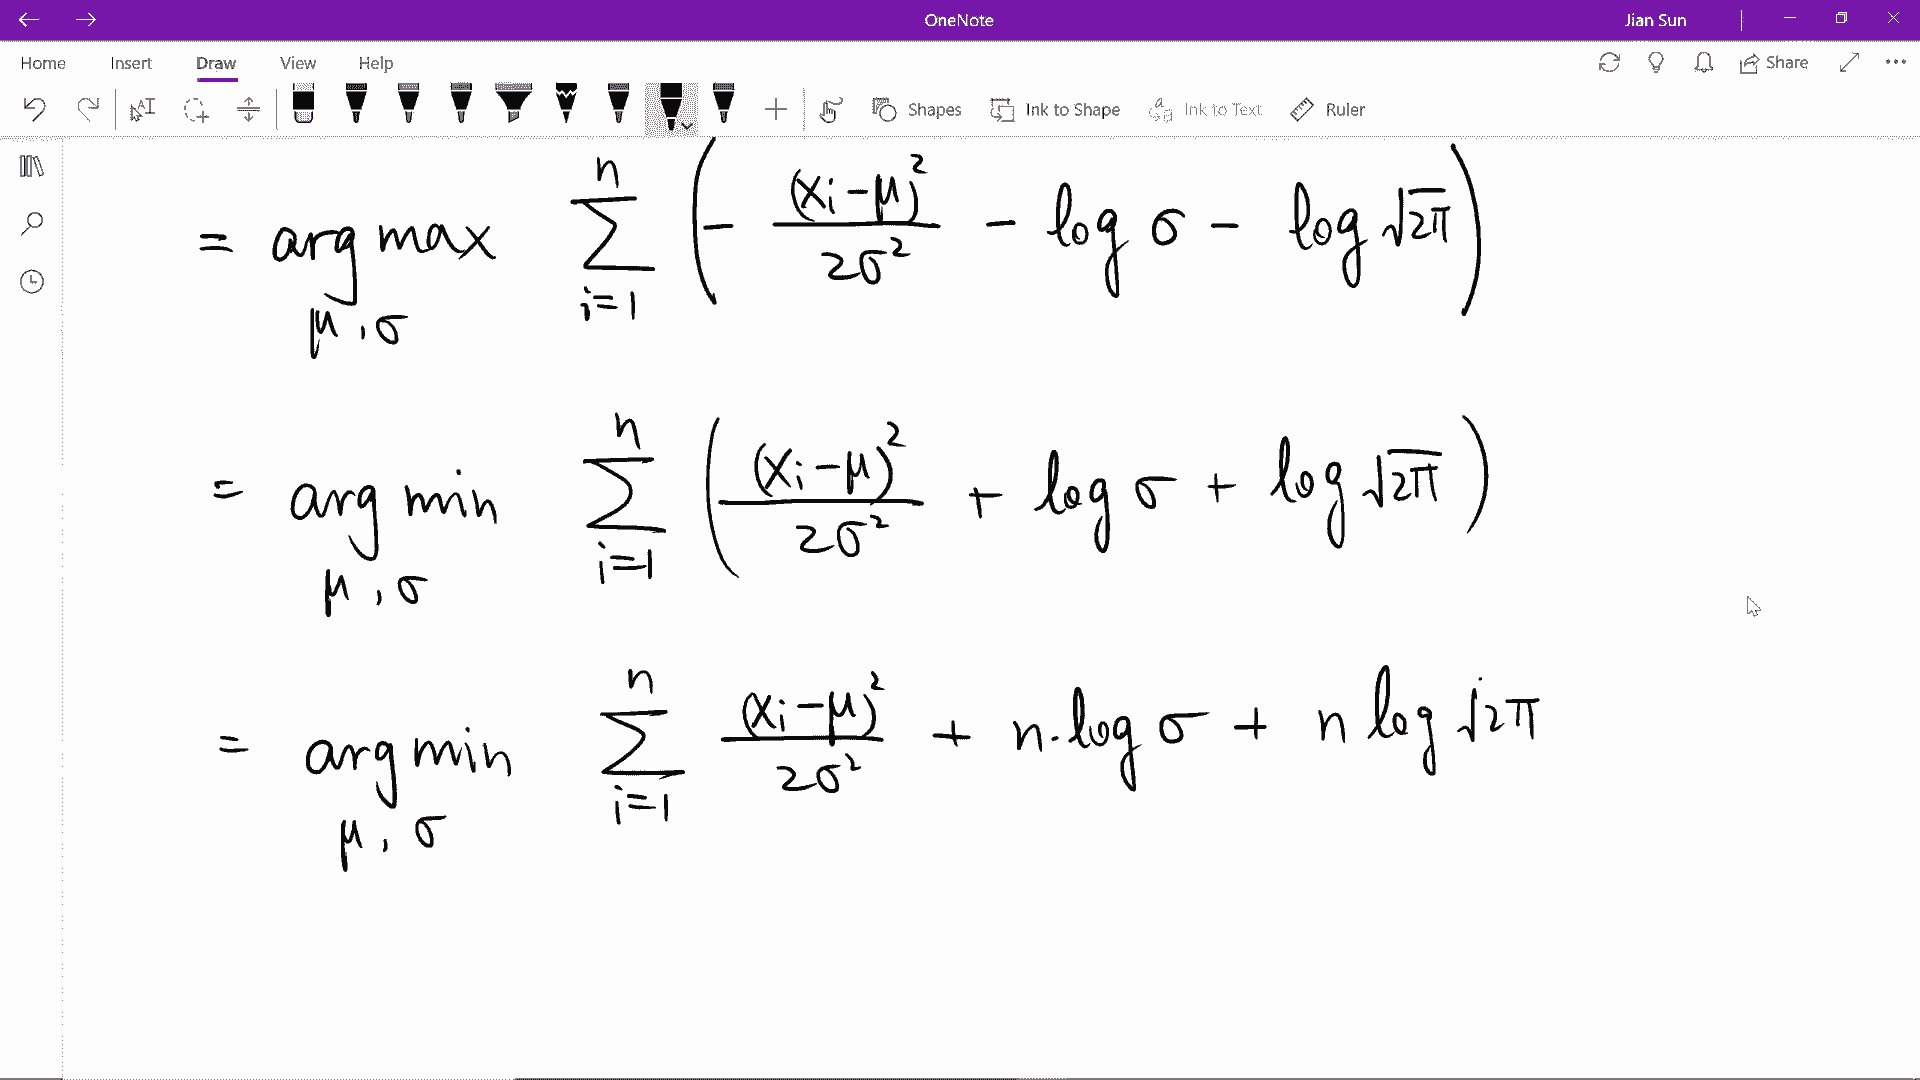 OneNote
Jian Sun
Home Insert Draw View Help
Share
Shapes Ink to Shape Ink to Text Ruler
= arg max_{μ,σ} ∑_{i=1}^{n} ( - (xi-μ)² / 2σ² - log σ - log √2π )
= arg min_{μ,σ} ∑_{i=1}^{n} ( (xi-μ)² / 2σ² + log σ + log √2π )
= arg min_{μ,σ} ∑_{i=1}^{n} (xi-μ)² / 2σ² + n·log σ + n log √2π